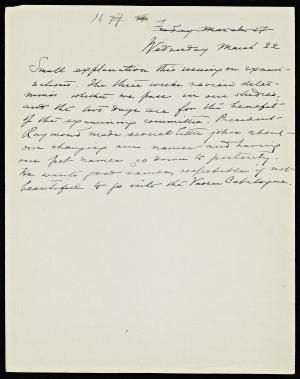 Friday March 17
Wednesday March 22
Small explanation this evening on exami-
nations. The three weeks review deter-
mines whether we pass in our studies,
and the two days are for the benefit
of the examining committee. President
Raymond made several little jokes about
our changing our names and having
our pet names go down to posterity.
He wants good names, respectable if not
beautiful to go into the Vassar Catalogue.